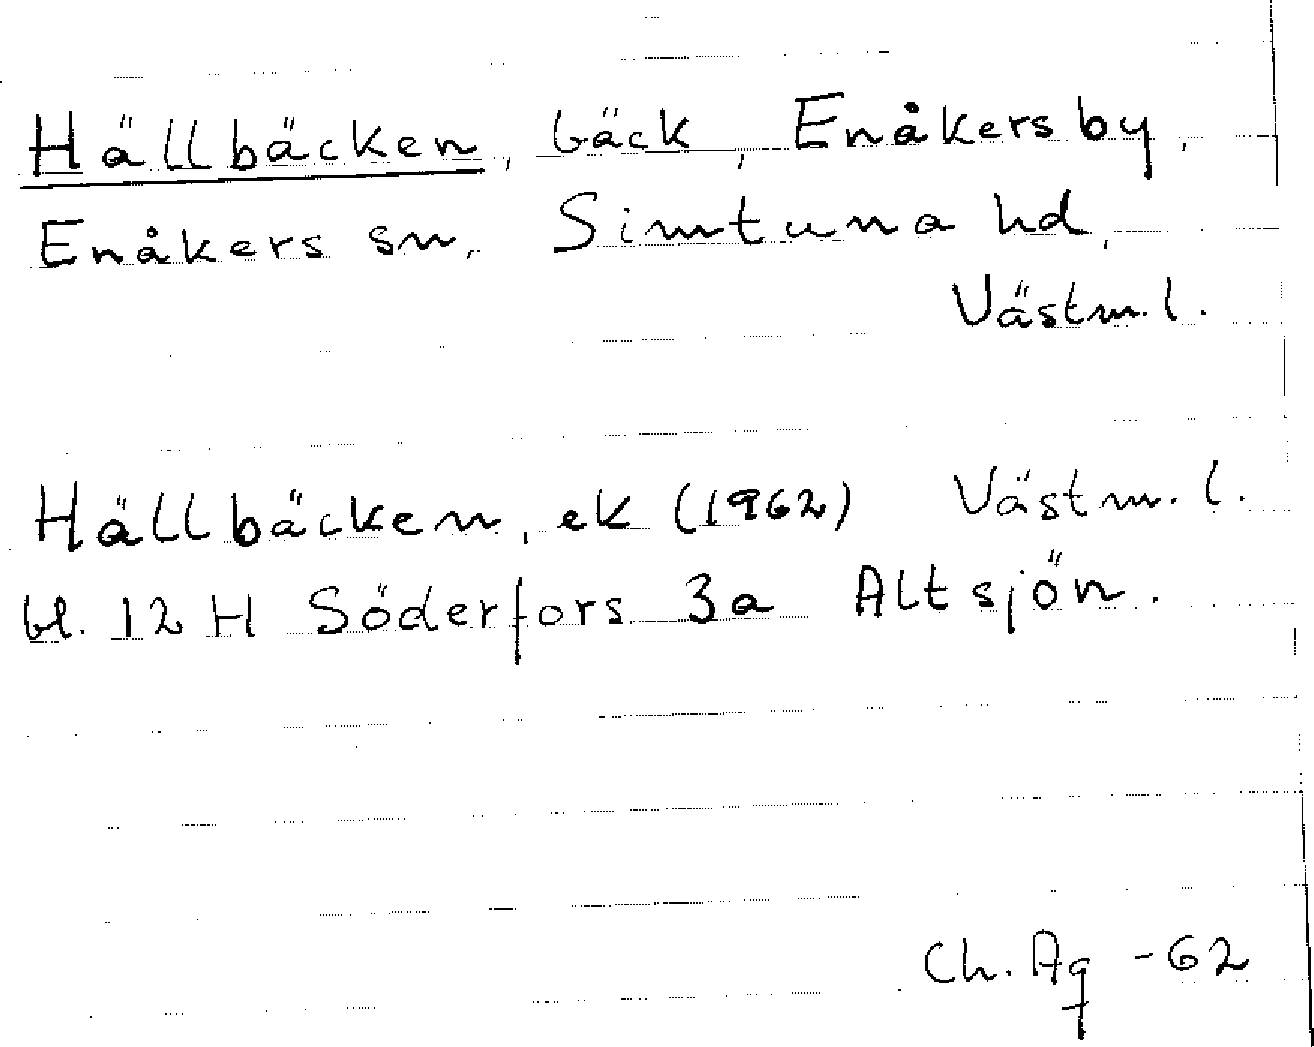 Hällbäcken, bäck, Enåkersby,
Enåkers sn, Simtuna hd,
Västm. l.
Hällbäcken, ek (1962) Västm. l.
bl. 12 H Söderfors 3a Altsjön.
Ch. Aq -62